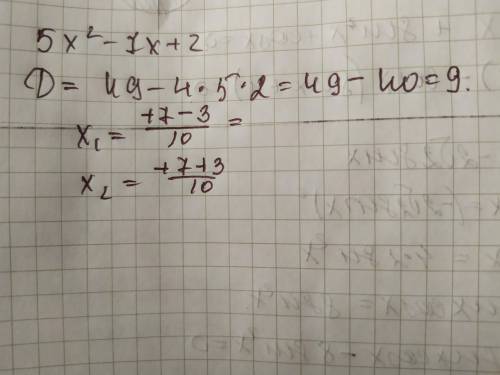 5x² - 7x + 2
D = 49 - 4 · 5 · 2 = 49 - 40 = 9.
x₁ = +7-3/10 =
x₂ = +7+3/10